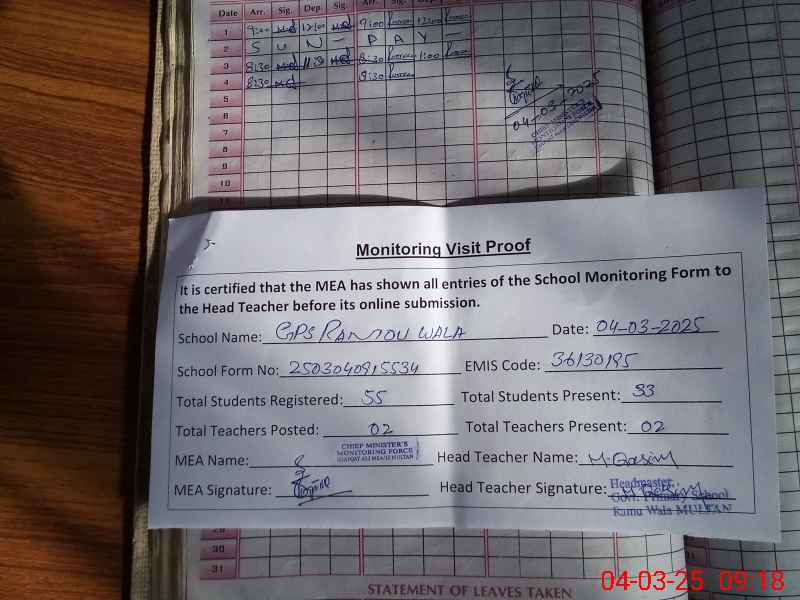 Date Arr. Sig. Dep. Sig. Arr. Sig. Dep. Sig.
1 9:00 12:00 9:00 12:00
2 S U N - D A Y -
3 8:30 8:30 11:00
4 8:30 8:30
5
6
7
8
9
10
04-03-2025
CHIEF MINISTER'S
MONITORING FORCE
Monitoring Visit Proof
It is certified that the MEA has shown all entries of the School Monitoring Form to
the Head Teacher before its online submission.
School Name: GPS RAMOU WALA Date: 04-03-2025
School Form No: 2503040915534 EMIS Code: 36130195
Total Students Registered: 55 Total Students Present: 53
Total Teachers Posted: 02 Total Teachers Present: 02
CHIEF MINISTER'S
MONITORING FORCE
LIAQAT ALI MEA/LI MULTAN
MEA Name: Head Teacher Name: M. Qasim
MEA Signature: Head Teacher Signature: M. Qasim
Headmaster
Govt. Primary School
Ramu Wala MULTAN
29
30
31
STATEMENT OF LEAVES TAKEN
04-03-25 09:18